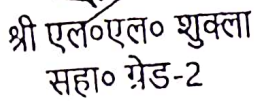 श्री एल०एल० शुक्ला
सहा० ग्रेड-2